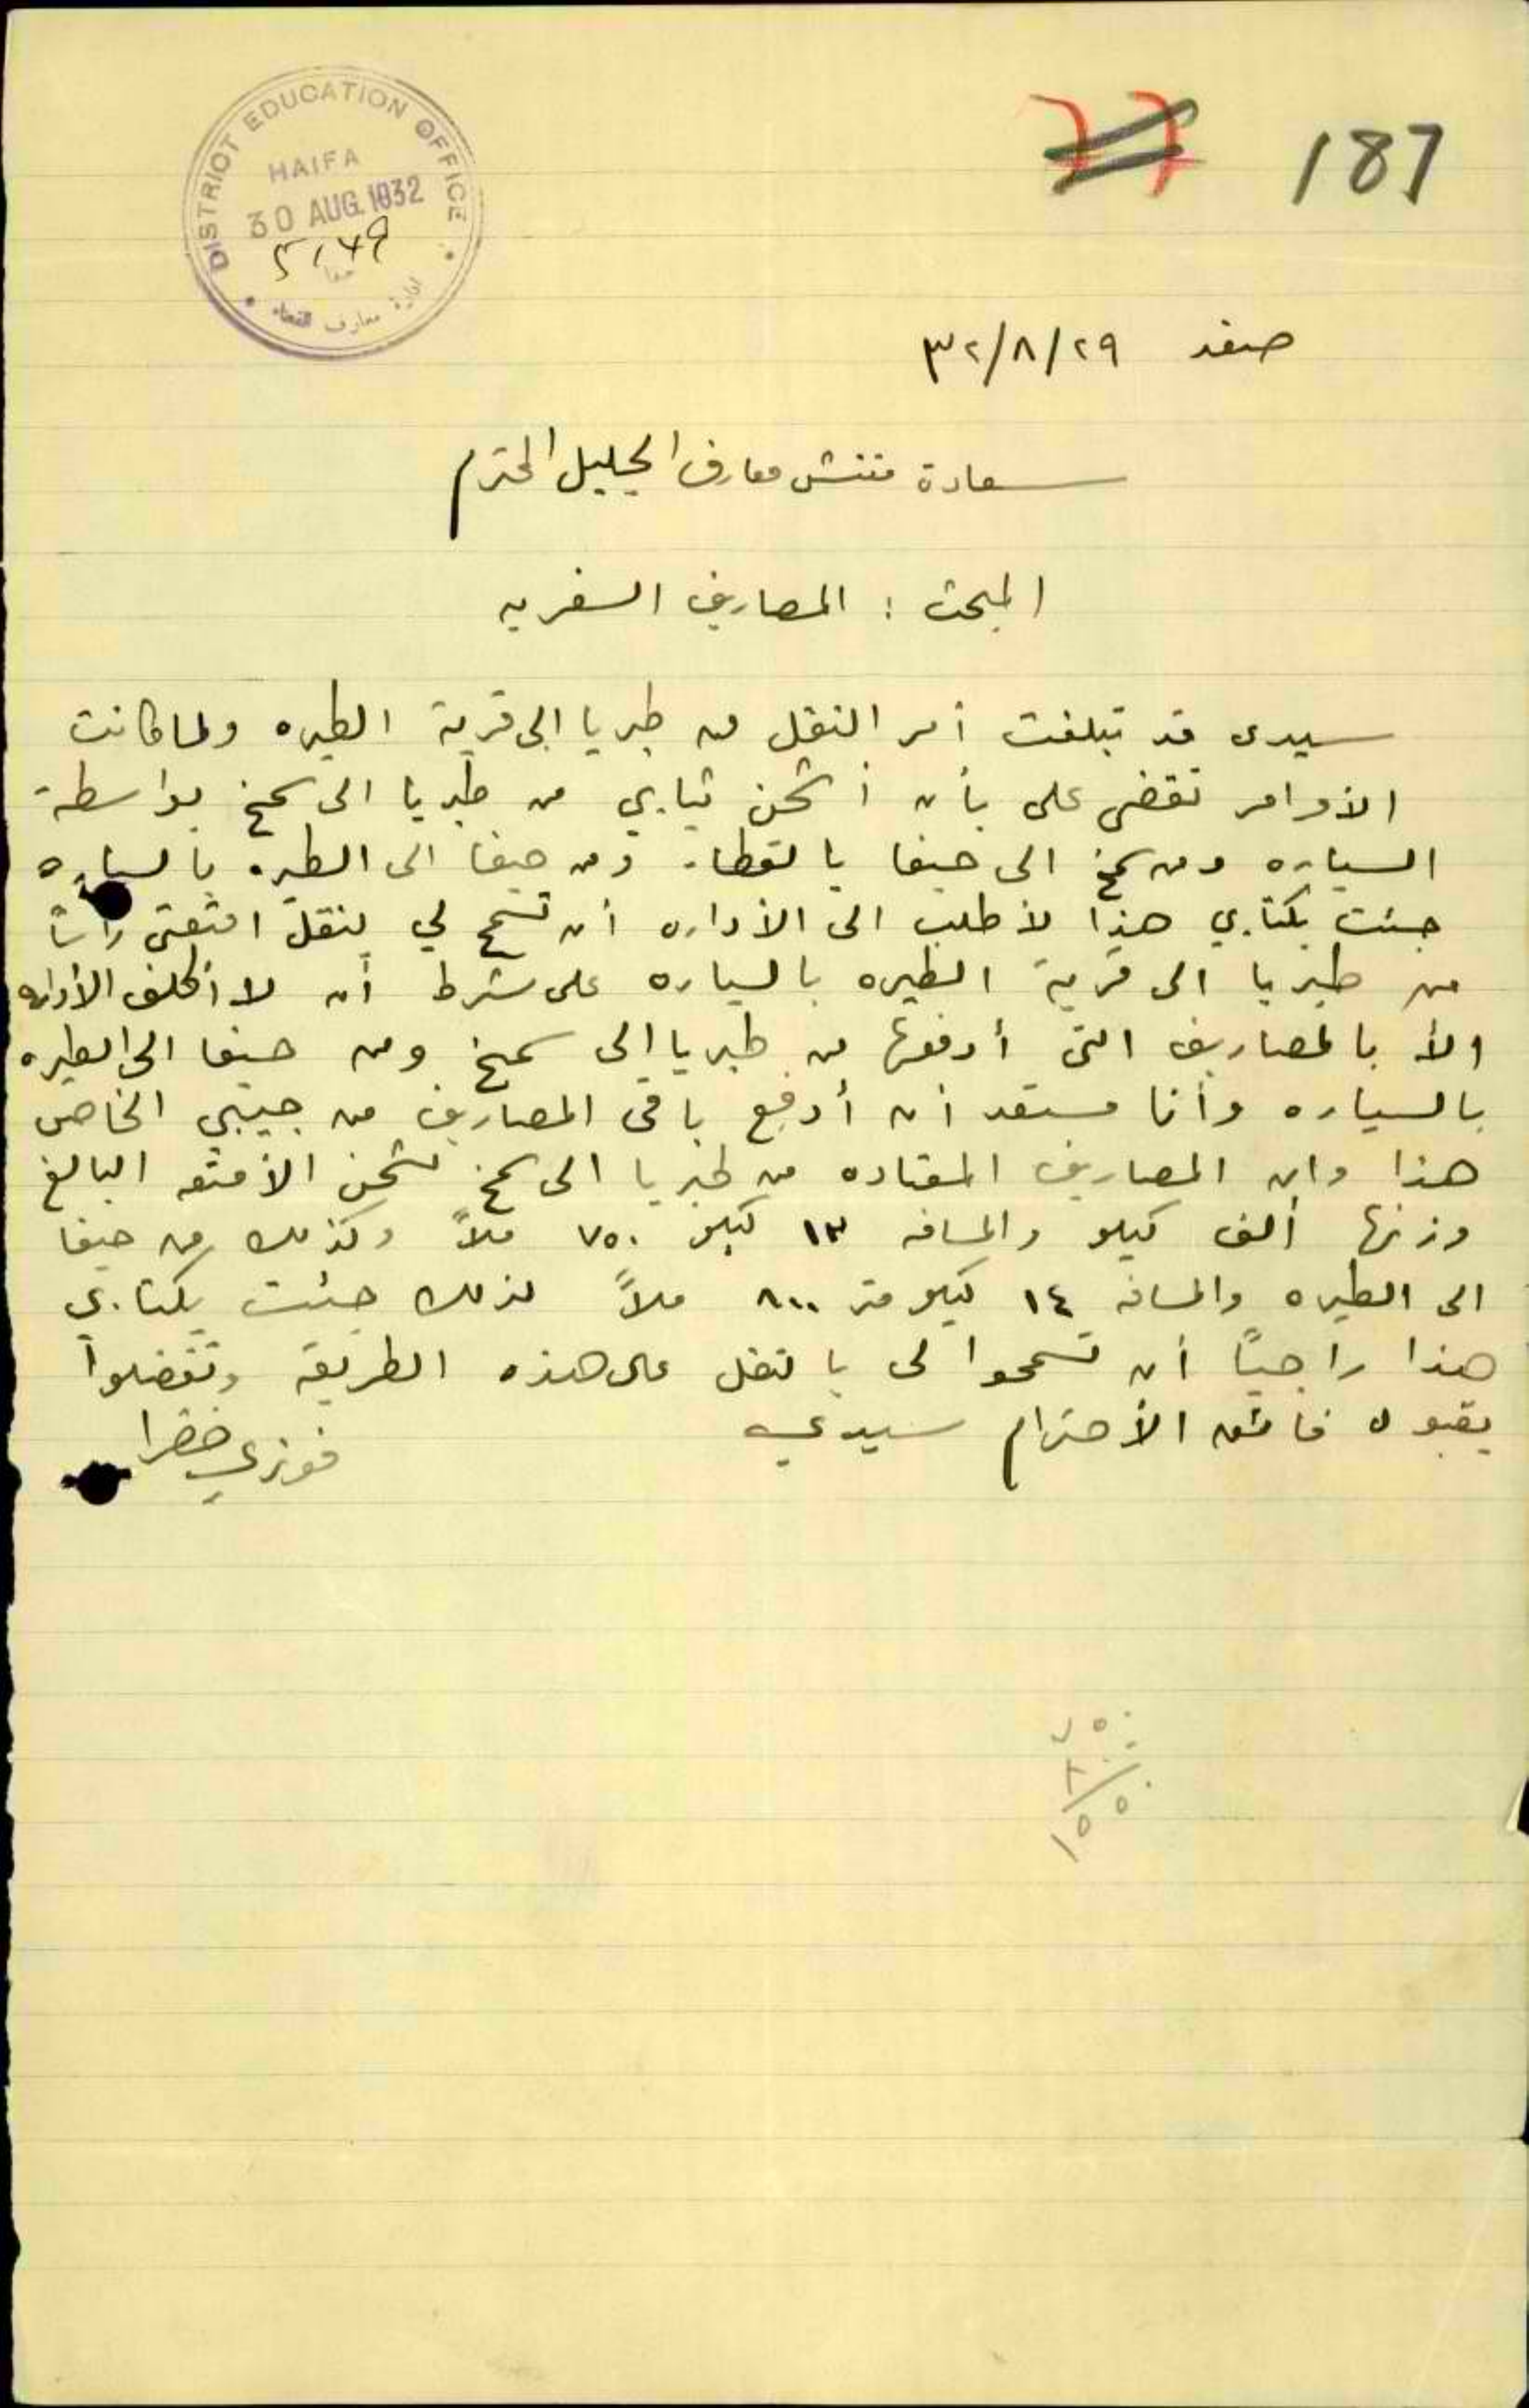 187
DISTRICT EDUCATION OFFICE
HAIFA
30 AUG 1932
ادارة معارف
حيفا
صفد ٢٩/٨/٣٢
سعادة مفتش معارف الجليل المحترم
المبحث : المصاريف السفريه
سيدى قد تبلغت أمر النقل من طبريا الى قرية الطيره ولما كانت
الأوامر تقضى على بأن أشحن ثيابي من طبريا الى سمخ بواسطة
السياره ومن سمخ الى حيفا بالقطار ومن حيفا الى الطيره بالسياره
جئت بكتابي هذا لأطلب الى الأداره أن تسمح لي بنقل امتعتى رأساً
من طبريا الى قرية الطيره بالسياره على شرط أن لا أكلف الأداره
الأ بالمصاريف التى أدفعها من طبريا الى سمخ ومن حيفا الى الطيره
بالسياره وأنا مستعد أن أدفع باقى المصاريف من جيبي الخاص
هذا وان المصاريف المعتاده من طبريا الى سمخ لشحن الأمتعه البالغ
وزنها ألف كيلو والمسافه ١٣ كيلو ٧٥٠ ملاً وكذلك من حيفا
الى الطيره والمسافه ١٤ كيلو متر ٨٠٠ ملاً لذلك جئت بكتابي
هذا راجياً أن تسمحوا لى بالنقل على هذه الطريقه وتفضلوا
بقبول فائق الأحترام سيدي
فوزي خضرا
٧٥٠
٨٠٠
١٥٥٠